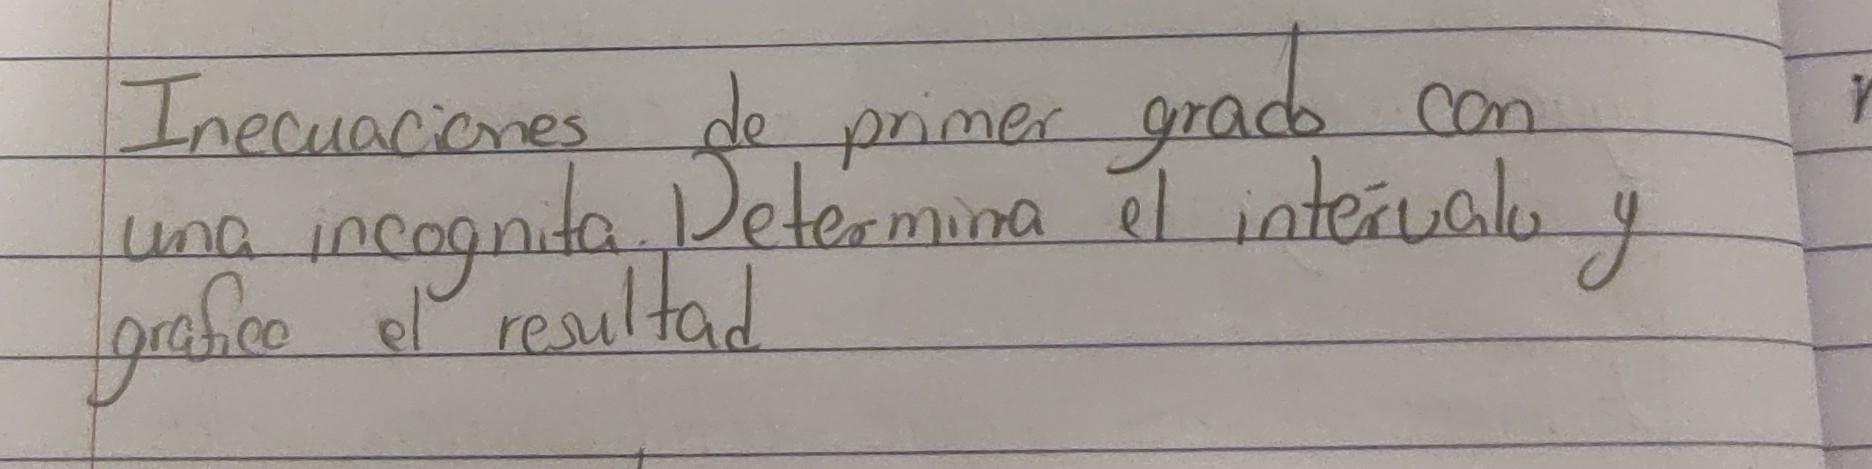 Inecuaciones de primer grado con
una incognita. Determina el intervalo y
grafico el resultad